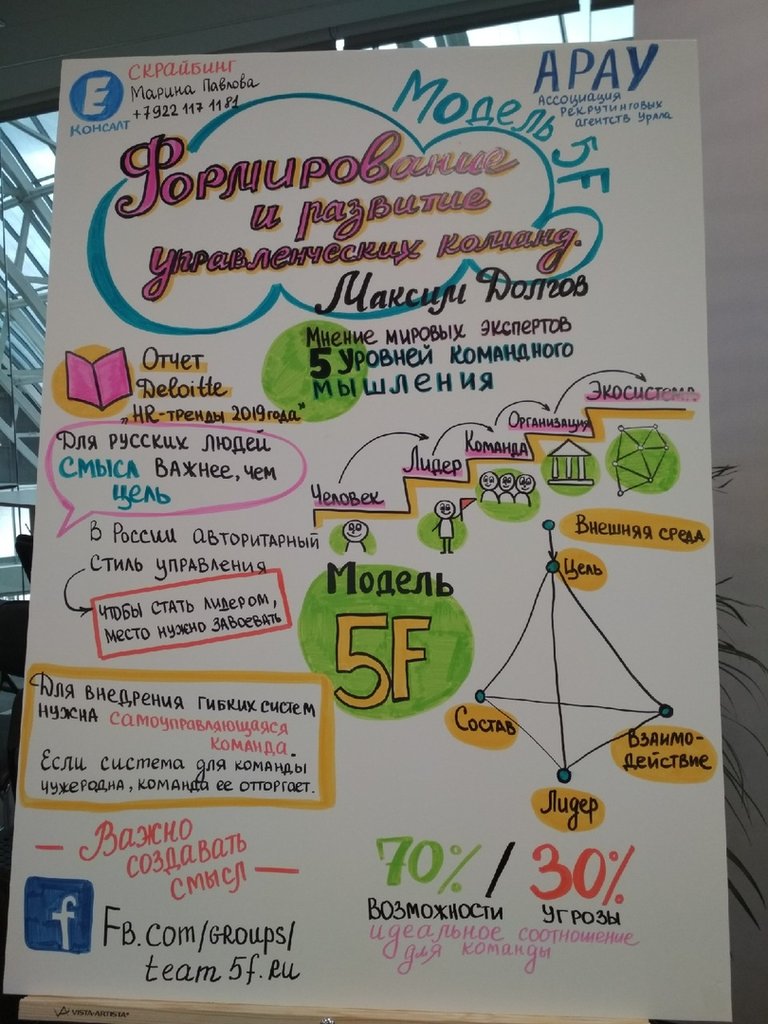 Е
КОНСАЛТ
СКРАЙБИНГ
Марина Павлова
+7922 117 11 81
АРАУ
Ассоциация
рекрутинговых
агентств Урала
Модель 5F
Формирование
и развитие
управленческих команд.
Максим Долгов
Отчет
Deloitte
"HR-тренды 2019 года"
Мнение мировых экспертов
5 уровней командного
мышления
Для русских людей
смысл важнее, чем
цель
Человек
Лидер
Команда
Организация
Экосистема
В России авторитарный
стиль управления
чтобы стать лидером,
место нужно завоевать
Модель
5F
Внешняя среда
Цель
Состав
Взаимо-
действие
Лидер
Для внедрения гибких систем
нужна самоуправляющаяся
команда.
Если система для команды
чужеродна, команда ее отторгает.
— Важно
создавать
смысл —
70% / 30%
возможности угрозы
идеальное соотношение
для команды
f
FB.com/groups/
team5f.ru
VISTA-ARTISTA